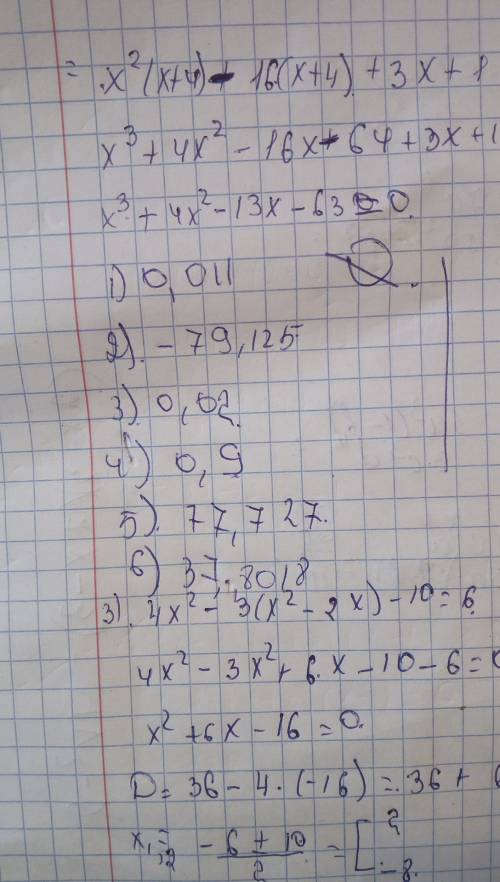 = x²(x+4) - 16(x+4) + 3x + 1
x³ + 4x² - 16x - 64 + 3x + 1
x³ + 4x² - 13x - 63 = 0.
1) 0,011
2) - 79,125
3) 0,02
4) 0,9
5) 77,727.
6) 37,8018
3) 4x² - 3(x² - 2x) - 10 = 6
4x² - 3x² + 6x - 10 - 6 = 0
x² + 6x - 16 = 0.
D = 36 - 4·(-16) = 36 + 6
x₁,₂ = (-6 ± 10)/2 = [2 -8